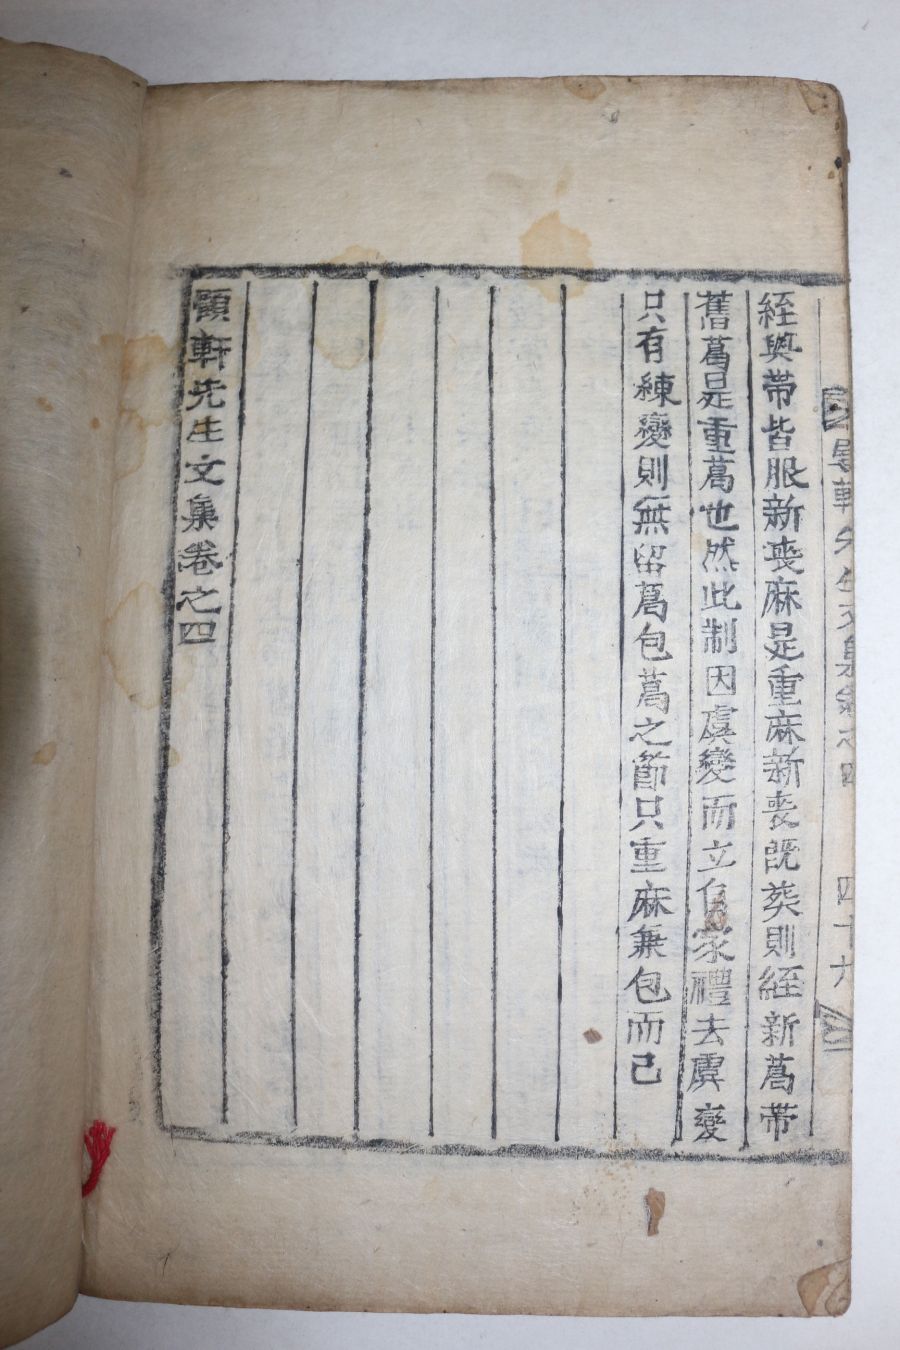 軒先生文集卷之四 四十九
絰與帶皆服新喪麻是重麻新喪旣葬則絰新葛帶
舊葛是重葛也然此制因虞變而立自家禮去虞變
只有練變則無留葛包葛之節只重麻兼包而已
軒先生文集卷之四